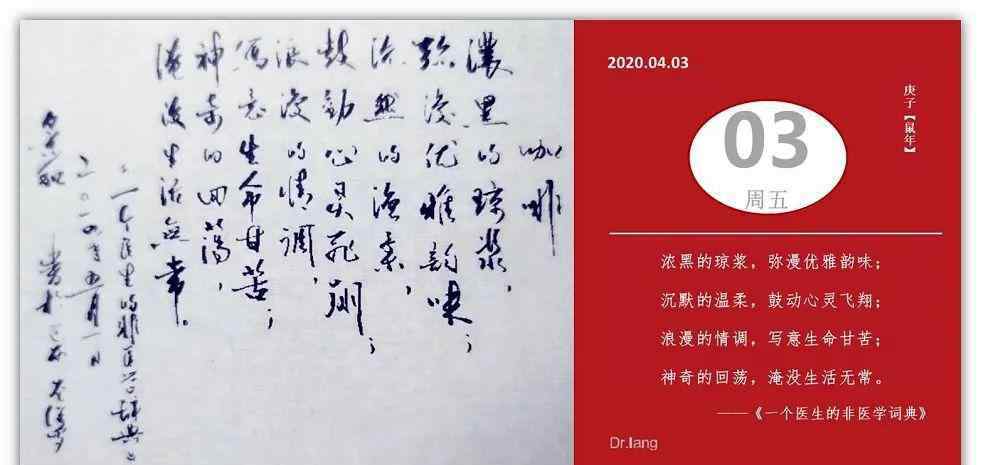 咖啡
濃黑的琼浆，
弥漫优雅韵味；
沉默的温柔，
鼓动心灵飞翔；
浪漫的情调，
寫意生命甘苦；
神奇的回荡，
淹没生活無常。
一个医生的非医学辞典
五月一日
2020.04.03
庚子【鼠年】
03
周五
浓黑的琼浆，弥漫优雅韵味；
沉默的温柔，鼓动心灵飞翔；
浪漫的情调，写意生命甘苦；
神奇的回荡，淹没生活无常。
——《一个医生的非医学词典》
Dr.lang